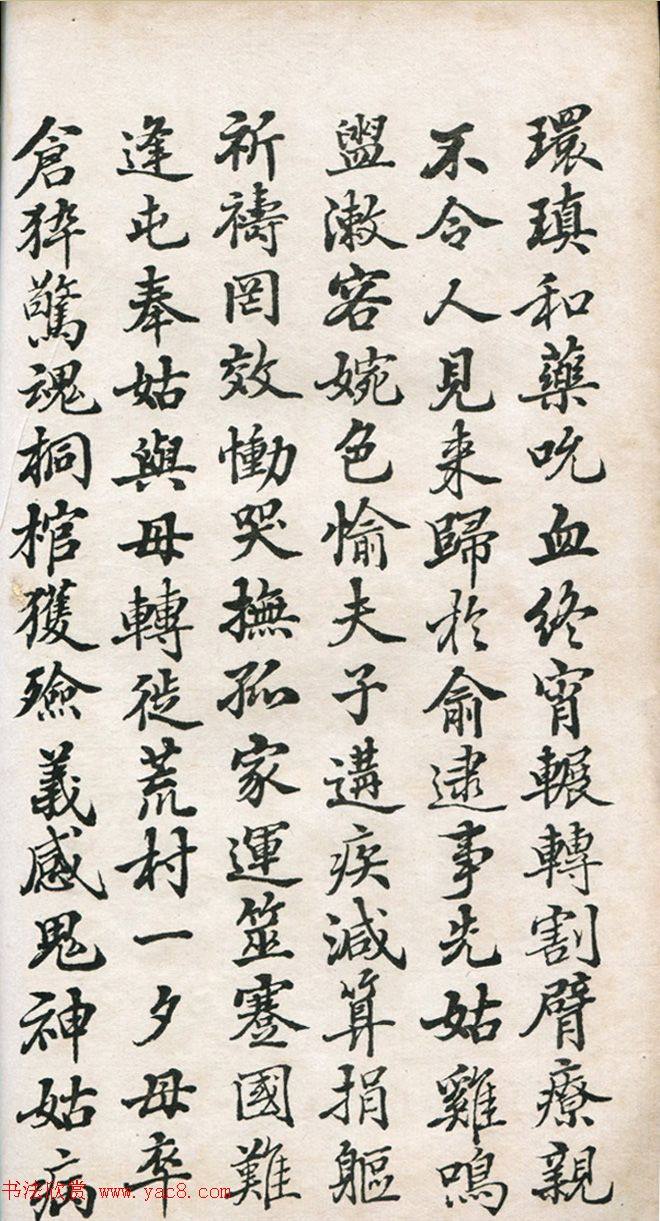 環瑱和藥吮血終宵輾轉割臂療親
不令人見来歸於俞逮事先姑雞鳴
盥漱容婉色愉夫子遘疾減算捐軀
祈禱罔效慟哭撫孤家運筮蹇國難
逢屯奉姑與母轉徙荒村一夕母卒
倉猝驚魂桐棺獲殮義感鬼神姑病
书法欣赏 www.yac8.com